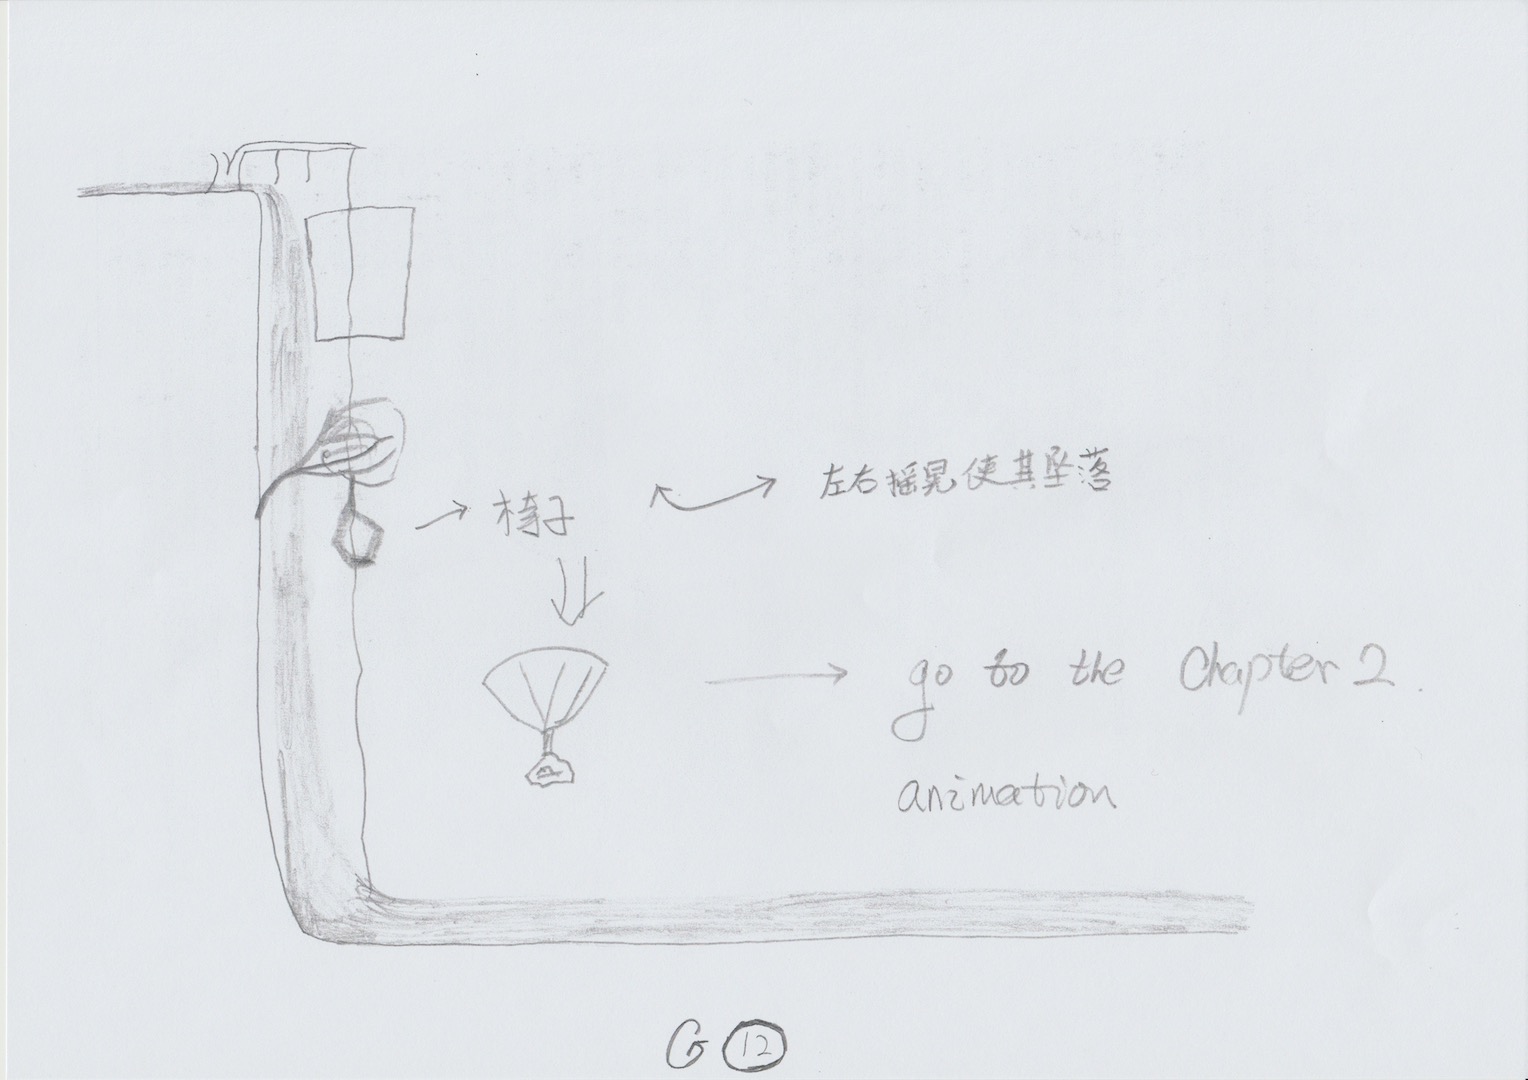 左右摇晃使其坠落
椅子
go to the Chapter 2.
animation
G 12